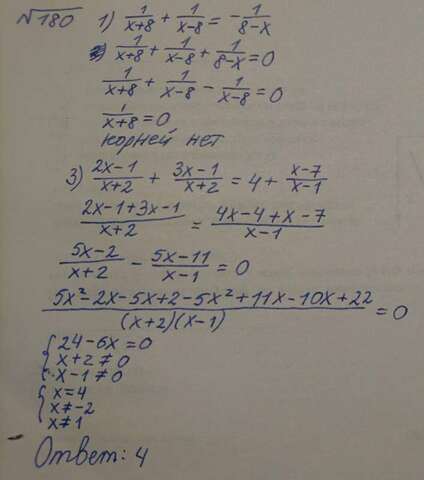 √180 1) 1/(x+8) + 1/(x-8) = -1/(8-x)
1/(x+8) + 1/(x-8) + 1/(8-x) = 0
1/(x+8) + 1/(x-8) - 1/(x-8) = 0
1/(x+8) = 0
корней нет
3) (2x-1)/(x+2) + (3x-1)/(x+2) = 4 + (x-7)/(x-1)
(2x-1+3x-1)/(x+2) = (4x-4+x-7)/(x-1)
(5x-2)/(x+2) - (5x-11)/(x-1) = 0
(5x²-2x-5x+2-5x²+11x-10x+22)/((x+2)(x-1)) = 0
24-6x=0
x+2≠0
x-1≠0
x=4
x≠-2
x≠1
Ответ: 4